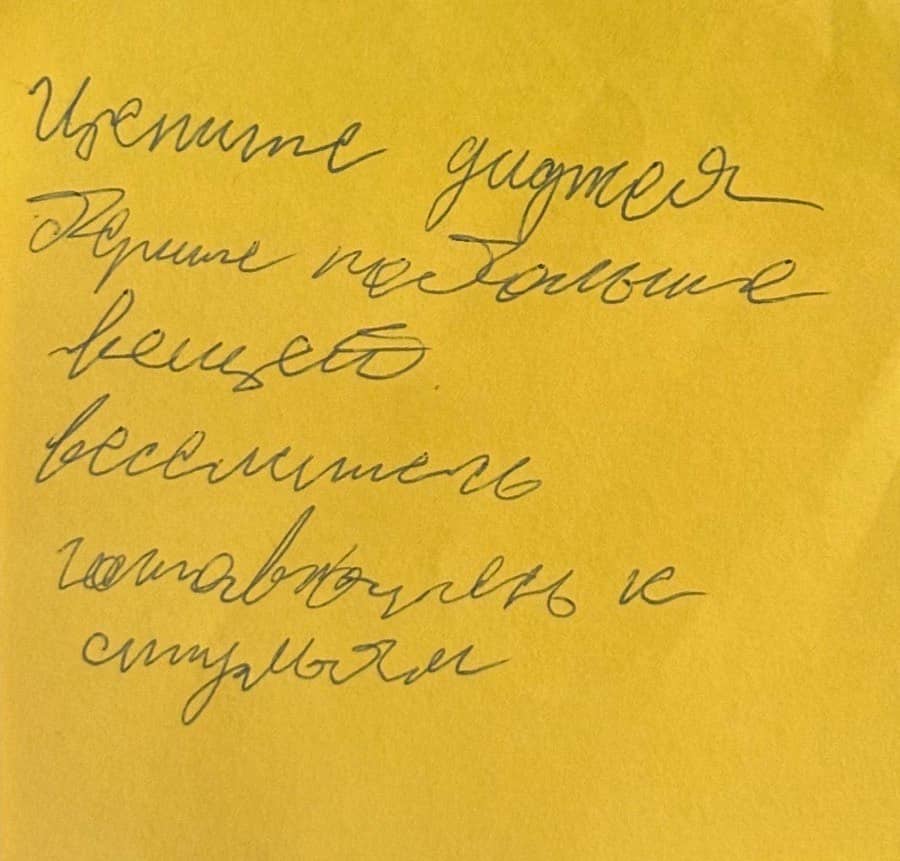 Цените диджея
Берите побольше
вещей
веселитесь
готовтесь к
стульям